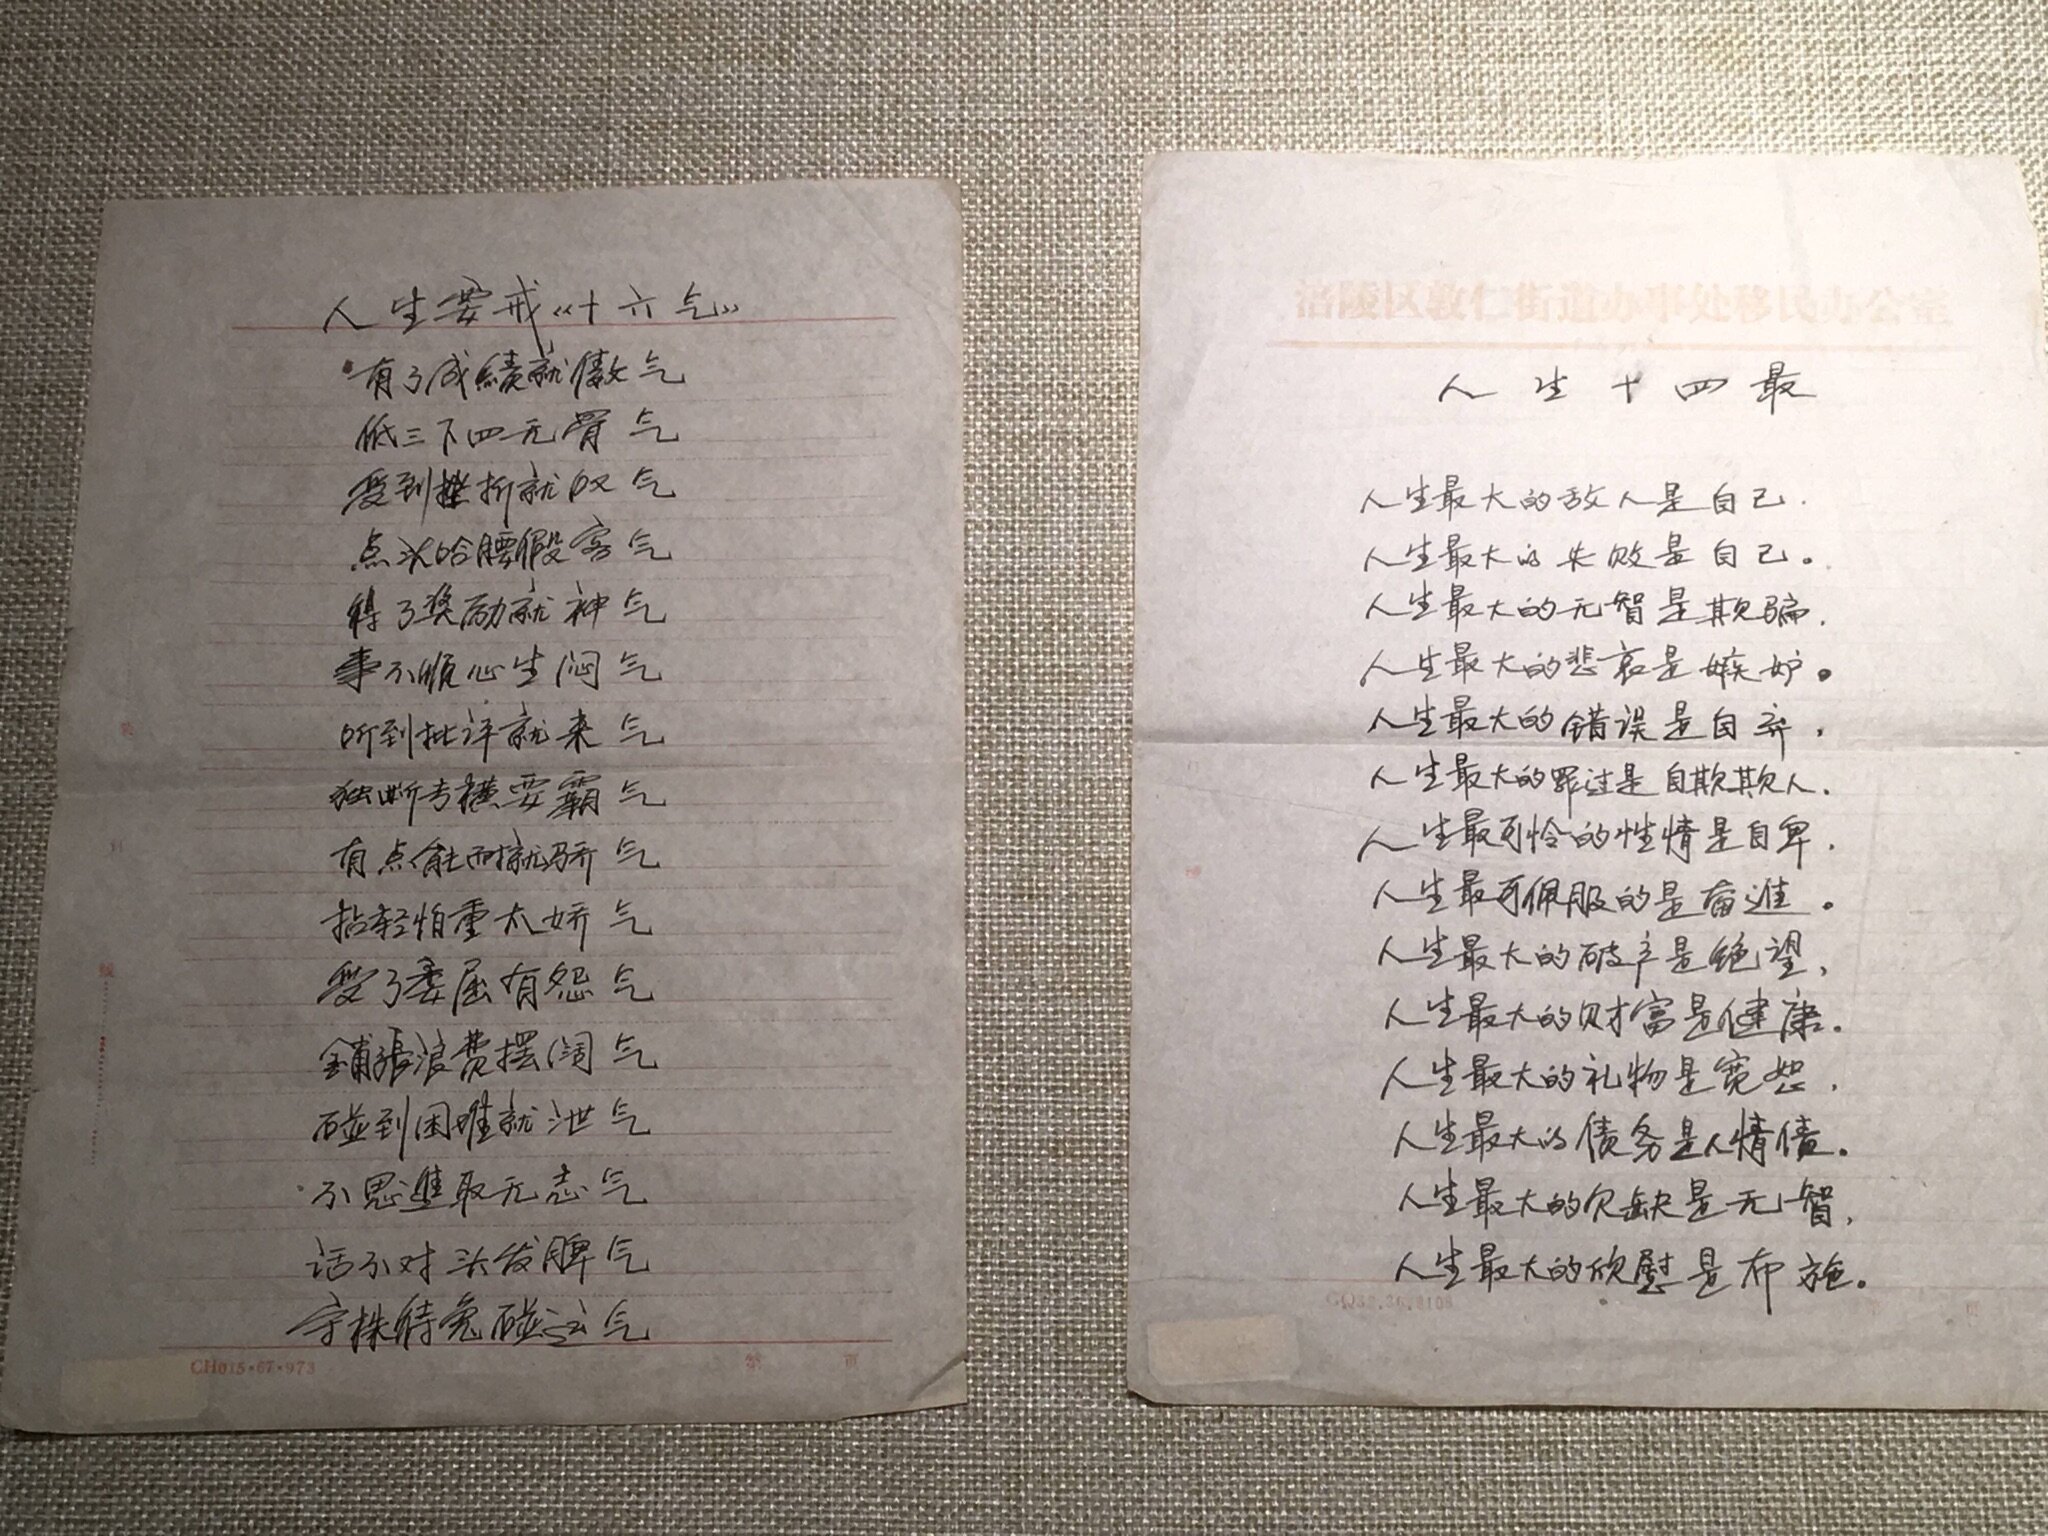 人生要戒《十六气》
有了成績就傲气
低三下四无骨气
受到挫折就叹气
点头哈腰假客气
得了奖励就神气
事不顺心生闷气
听到批评就来气
独断专横耍霸气
有点能耐就骄气
拈轻怕重太娇气
受了委屈有怨气
鋪張浪费摆阔气
碰到困难就泄气
不思進取无志气
话不对头发脾气
守株待兔碰运气
CH015·67·973 第 页
涪陵区敦仁街道办事处移民办公室
人生十四最
人生最大的敌人是自己.
人生最大的失败是自己。
人生最大的无智是欺骗.
人生最大的悲哀是嫉妒。
人生最大的错误是自弃,
人生最大的罪过是自欺欺人.
人生最可怜的性情是自卑.
人生最可佩服的是奋進。
人生最大的破产是绝望,
人生最大的财富是健康.
人生最大的礼物是宽恕.
人生最大的债务是人情债。
人生最大的欠缺是无智,
人生最大的欣慰是布施。